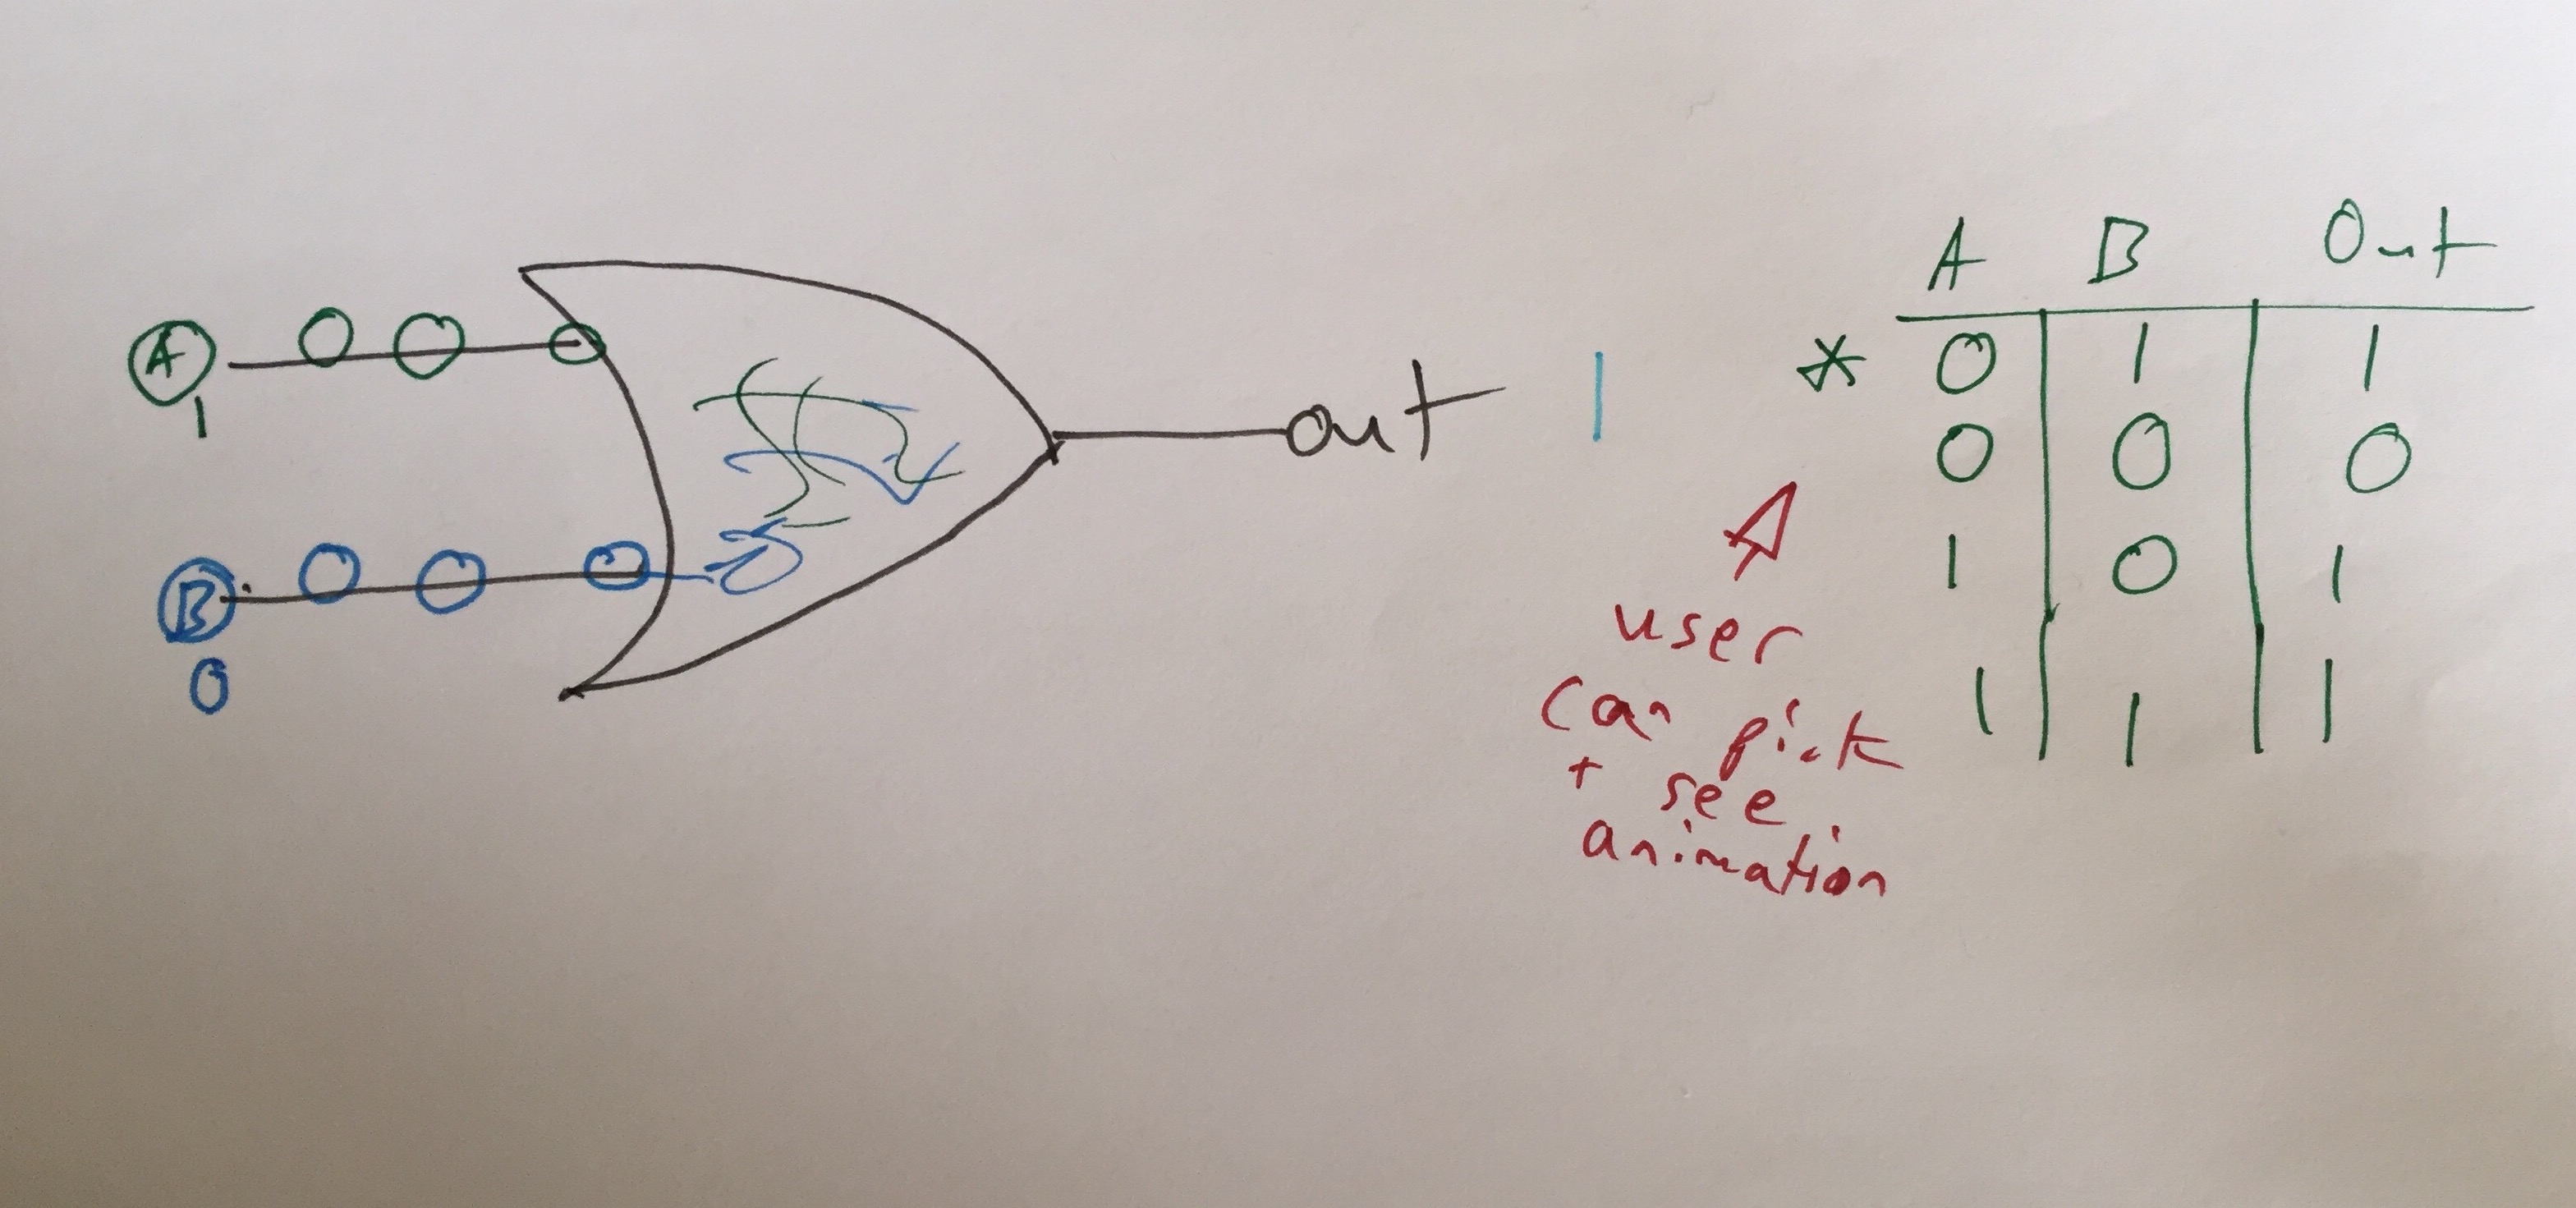 A
1
B
0
out 1
A B Out
* 0 1 1
0 0 0
1 0 1
1 1 1
user
can pick
+ see
animation